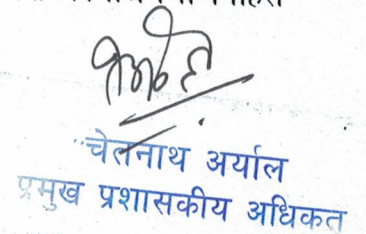 चेतनाथ अर्याल
प्रमुख प्रशासकीय अधिकत